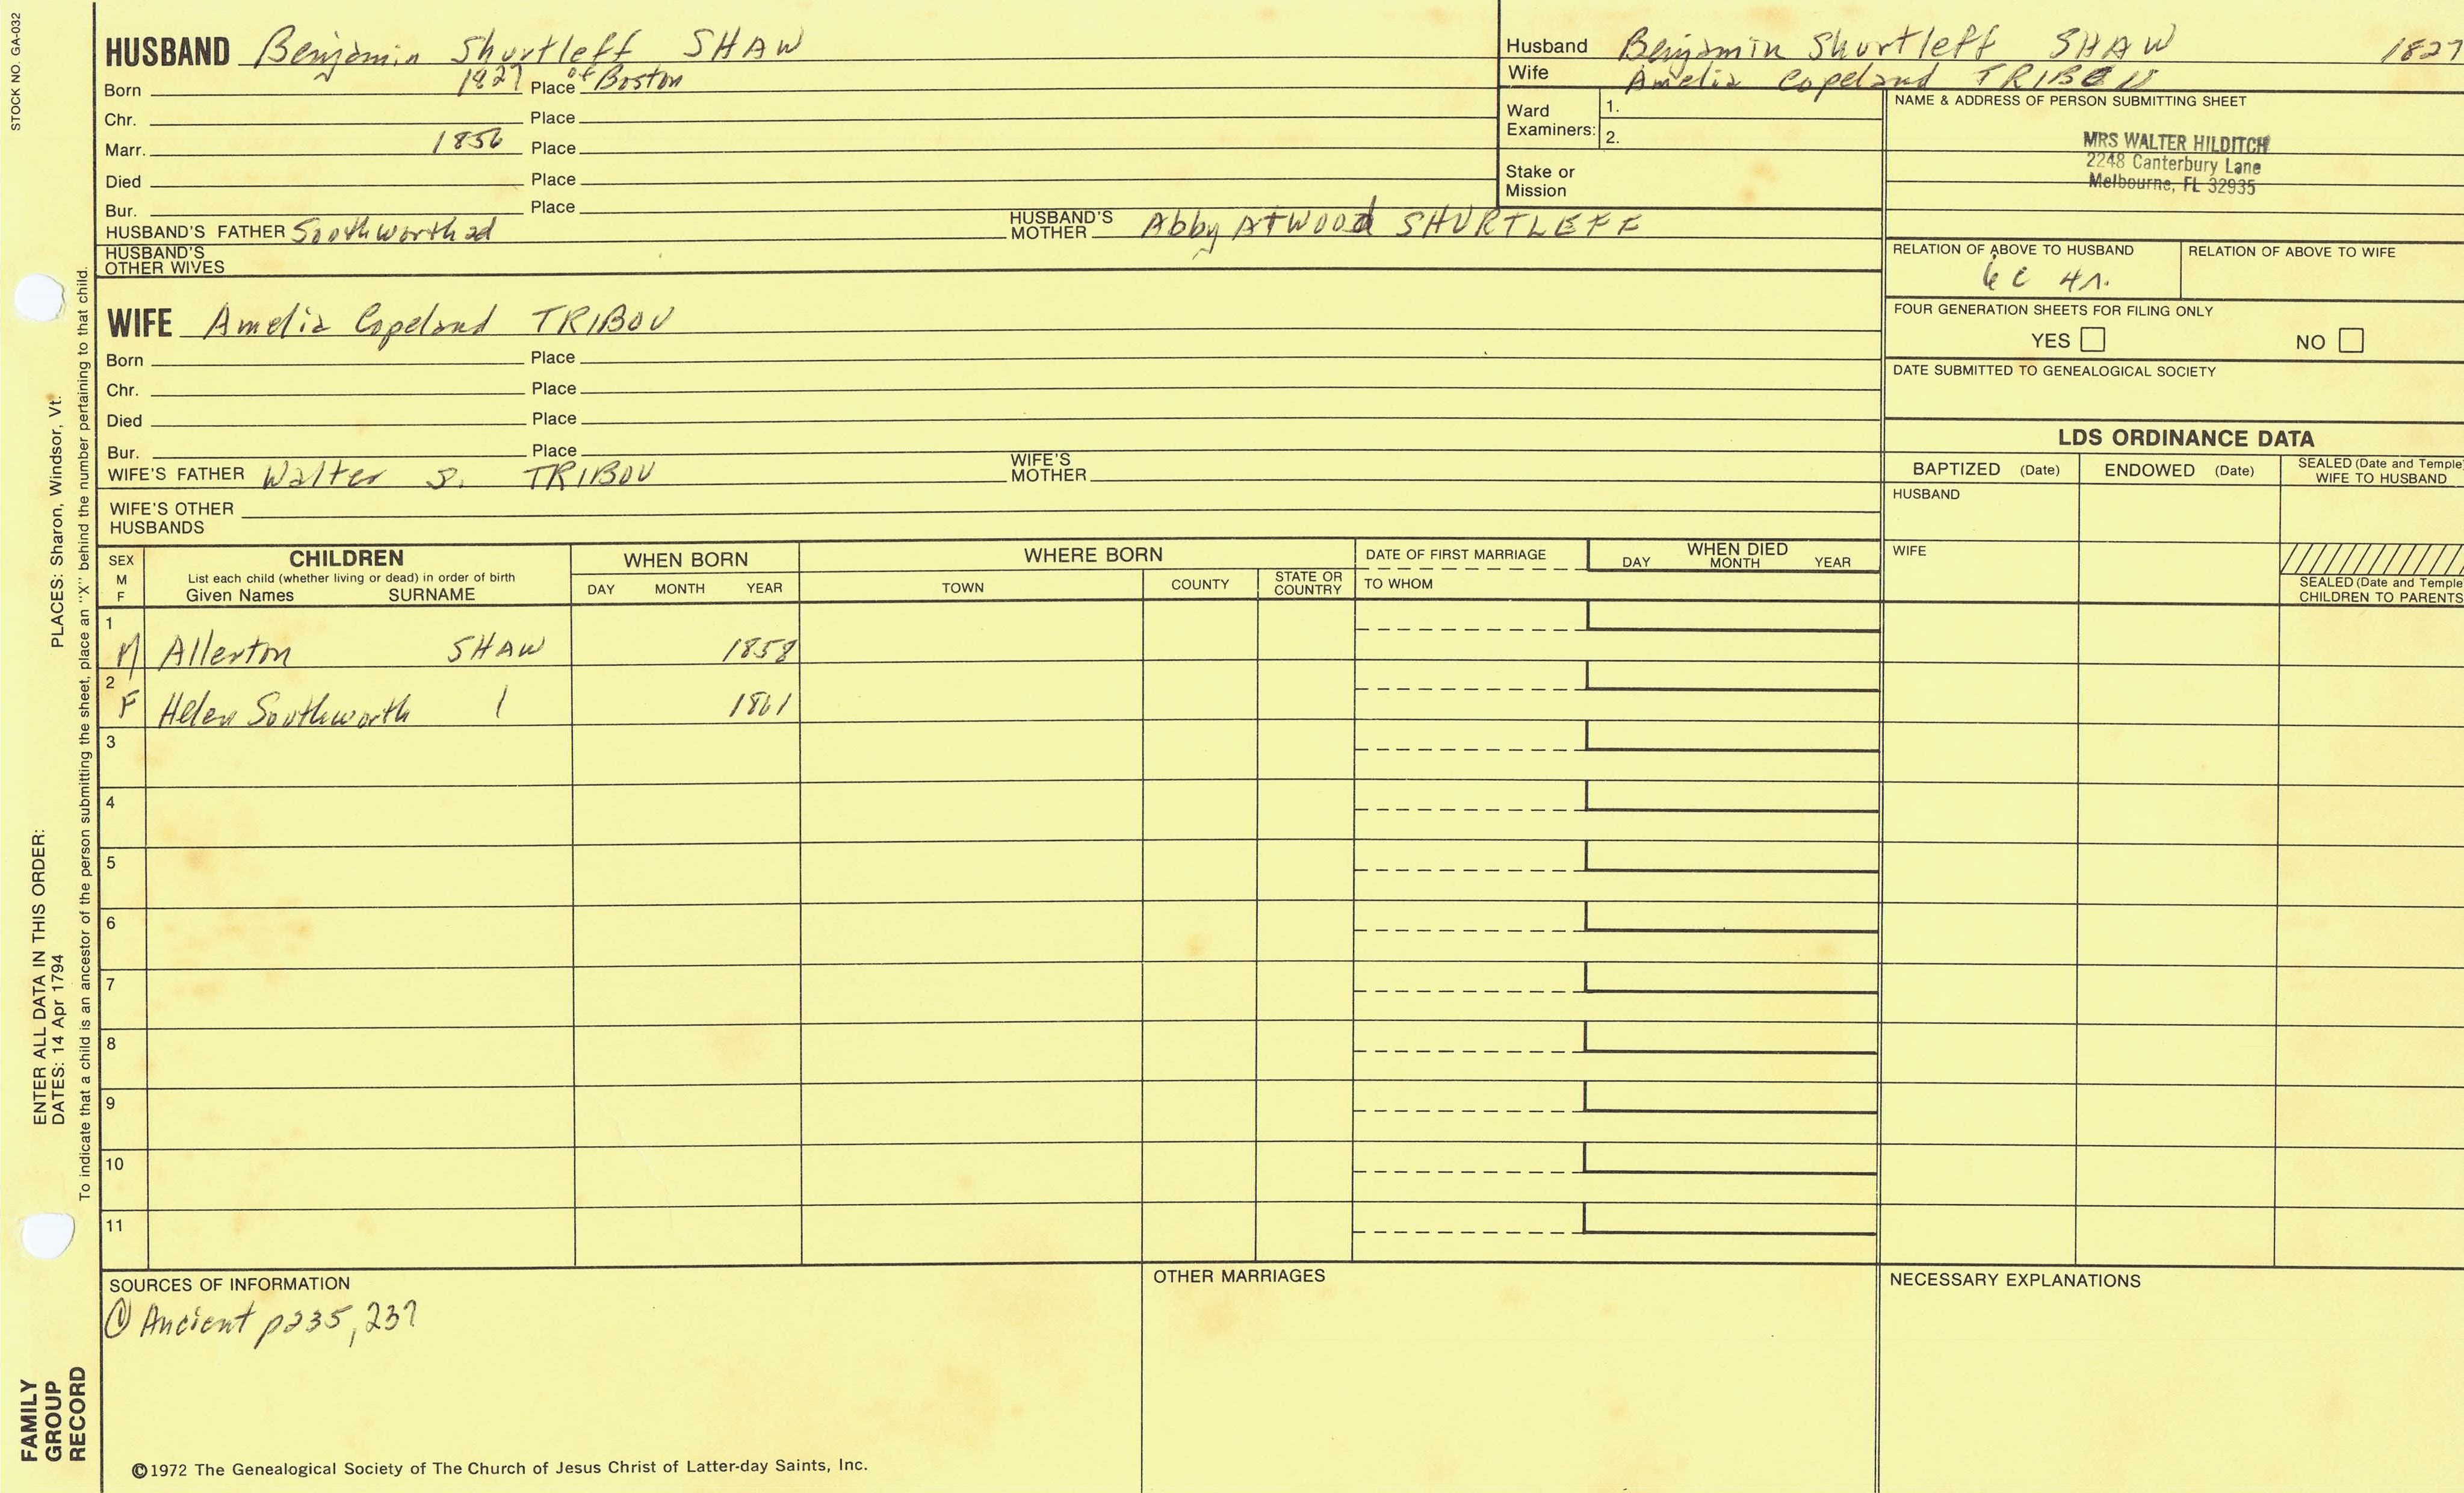 STOCK NO. GA-032
HUSBAND Benjamin Shurtleff SHAW
Born 1827 Place of Boston
Chr. Place
Marr. 1856 Place
Died Place
Bur. Place
HUSBAND'S FATHER Southworth HUSBAND'S MOTHER Abby Atwood SHURTLEFF
HUSBAND'S OTHER WIVES
Husband Benjamin Shurtleff SHAW 1827
Wife Amelia Copeland TRIBOU
Ward Examiners: 1.
2.
Stake or Mission
NAME & ADDRESS OF PERSON SUBMITTING SHEET
MRS WALTER HILDITCH
2248 Canterbury Lane
Melbourne, FL 32935
RELATION OF ABOVE TO HUSBAND RELATION OF ABOVE TO WIFE
6C 4r.
FOUR GENERATION SHEETS FOR FILING ONLY
YES NO
DATE SUBMITTED TO GENEALOGICAL SOCIETY
WIFE Amelia Copeland TRIBOU
Born Place
Chr. Place
Died Place
Bur. Place
WIFE'S FATHER Walter S. TRIBOU WIFE'S MOTHER
WIFE'S OTHER HUSBANDS
LDS ORDINANCE DATA
BAPTIZED (Date) ENDOWED (Date) SEALED (Date and Temple) WIFE TO HUSBAND
HUSBAND
WIFE
SEALED (Date and Temple) CHILDREN TO PARENTS
SEX M F
CHILDREN
List each child (whether living or dead) in order of birth
Given Names SURNAME
WHEN BORN
DAY MONTH YEAR
WHERE BORN
TOWN COUNTY STATE OR COUNTRY
DATE OF FIRST MARRIAGE
TO WHOM
WHEN DIED
DAY MONTH YEAR
1
M Allerton SHAW 1858
2
F Helen Southworth 1861
3
4
5
6
7
8
9
10
11
SOURCES OF INFORMATION
① Ancient p235, 237
OTHER MARRIAGES
NECESSARY EXPLANATIONS
©1972 The Genealogical Society of The Church of Jesus Christ of Latter-day Saints, Inc.
FAMILY GROUP RECORD
ENTER ALL DATA IN THIS ORDER:
DATES: 14 Apr 1794
PLACES: Sharon, Windsor, Vt.
To indicate that a child is an ancestor of the person submitting the sheet, place an "X" behind the number pertaining to that child.